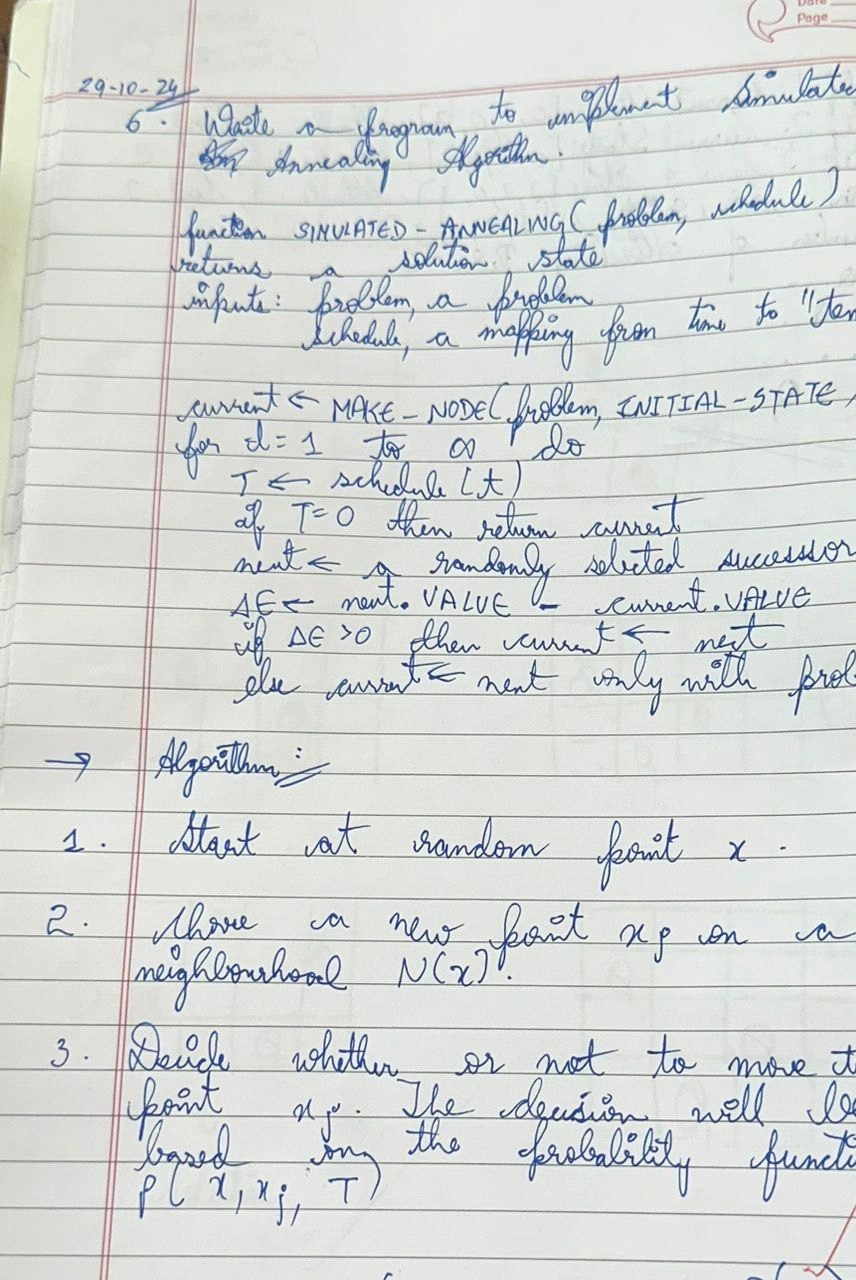 Date
Page
29-10-24
6. Write a program to implement Simulated
Annealing Algorithm.
function SIMULATED-ANNEALING(problem, schedule)
returns a solution state
inputs: problem, a problem
schedule, a mapping from time to "tem
current ← MAKE-NODE(problem, INITIAL-STATE
for t=1 to ∞ do
T ← schedule(t)
if T=0 then return current
next ← a randomly selected successor
ΔE ← next.VALUE - current.VALUE
if ΔE >0 then current ← next
else current ← next only with prob
→ Algorithm:
1. Start at random point x.
2. Choose a new point xj on a
neighbourhood N(x).
3. Decide whether or not to move t
point xj. The decision will be
based on the probability functi
P(x, xj, T)